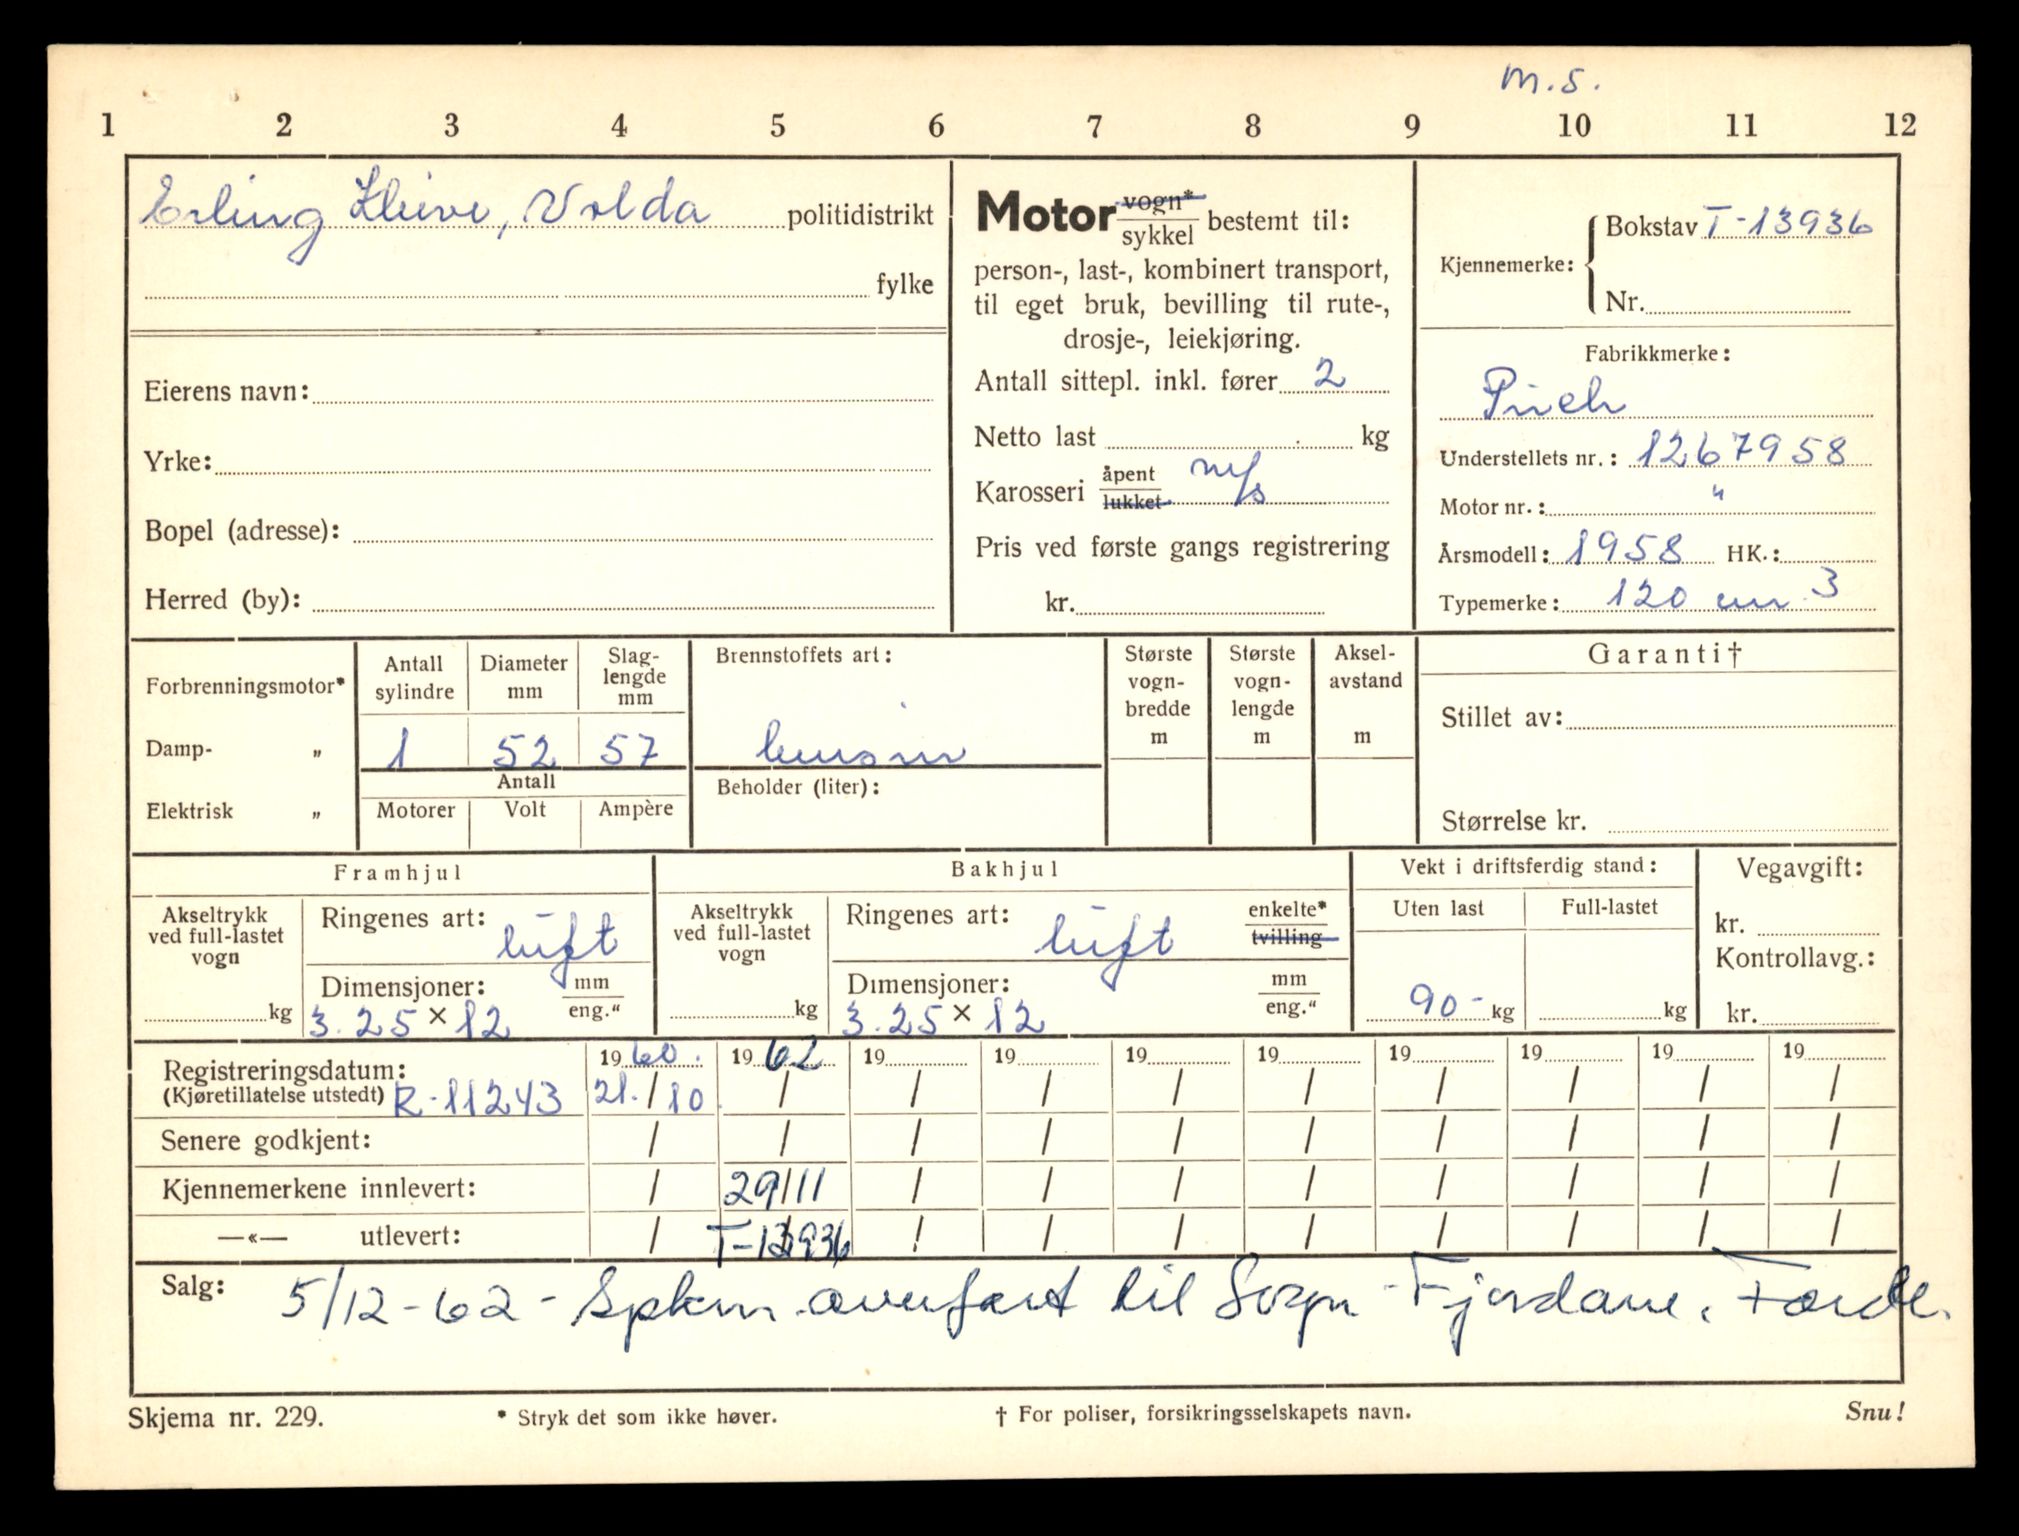 m.s.
1 2 3 4 5 6 7 8 9 10 11 12
Erling Kleive, Volda politidistrikt
fylke
Eierens navn:
Yrke:
Bopel (adresse):
Herred (by):
Motor vogn* / sykkel bestemt til:
person-, last-, kombinert transport,
til eget bruk, bevilling til rute-,
drosje-, leiekjøring.
Antall sittepl. inkl. fører 2
Netto last kg
Karosseri åpent / lukket m/s
Pris ved første gangs registrering
kr.
Kjennemerke: Bokstav T-13936
Nr.
Fabrikkmerke:
Puch
Understellets nr.: 1267958
Motor nr.: "
Årsmodell: 1958 HK.:
Typemerke: 120 cm 3
Forbrenningsmotor*
Damp- „
Elektrisk „
Antall sylindre
Diameter mm
Slag-lengde mm
1 52 57
Antall
Motorer Volt Ampère
Brennstoffets art:
bensin
Beholder (liter):
Største vogn-bredde m
Største vogn-lengde m
Aksel-avstand m
Garanti†
Stillet av:
Størrelse kr.
Framhjul
Akseltrykk ved full-lastet vogn
kg
Ringenes art: luft
Dimensjoner: mm / eng.“
3.25 × 12
Bakhjul
Akseltrykk ved full-lastet vogn
kg
Ringenes art: luft enkelte* / tvilling
Dimensjoner: mm / eng.“
3.25 × 12
Vekt i driftsferdig stand:
Uten last Full-lastet
90- kg kg
Vegavgift:
kr.
Kontrollavg.:
kr.
Registreringsdatum: 1960. 1962 19 19 19 19 19 19 19 19
(Kjøretillatelse utstedt) R-11243 21./10. / / / / / / / / /
Senere godkjent: / / / / / / / / / /
Kjennemerkene innlevert: / 29/11 / / / / / / / /
—«— utlevert: / T-13936 / / / / / / / /
Salg: 5/12-62 - Spkm. överfört til Sogn - Fjordane. Førde.
Skjema nr. 229.
* Stryk det som ikke høver.
† For poliser, forsikringsselskapets navn.
Snu!